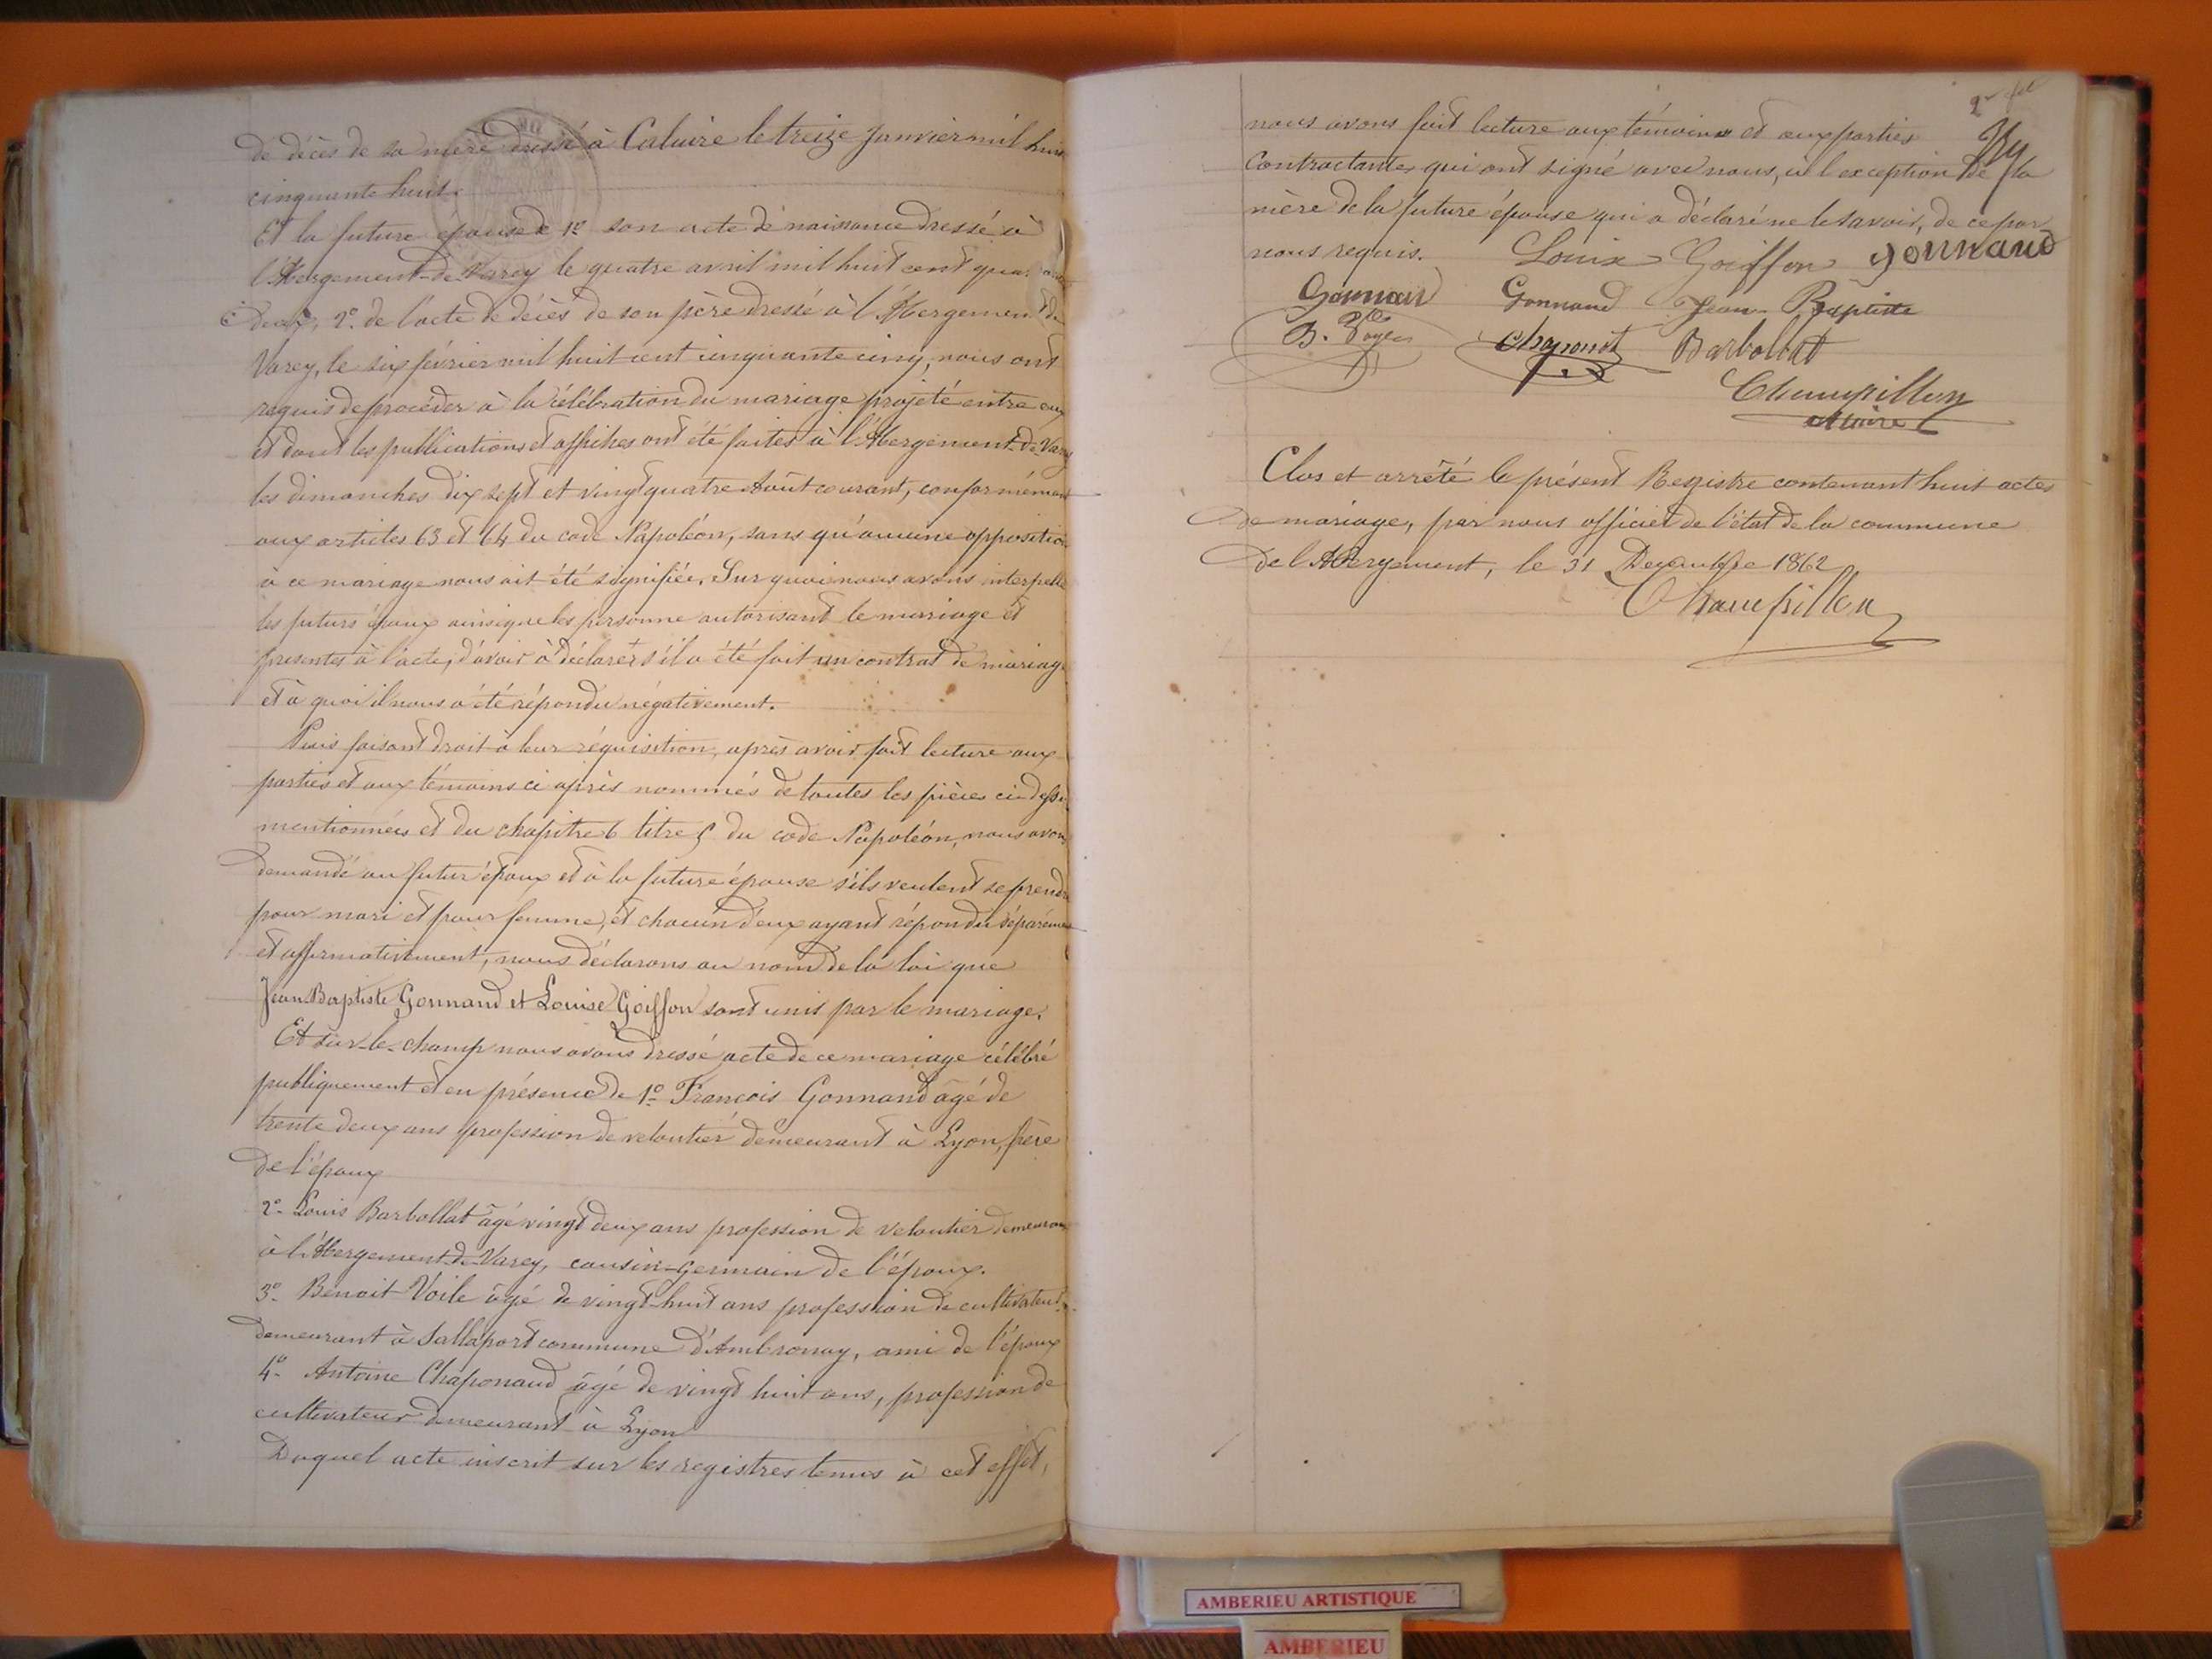 de décès de sa mère dressé à Caluire le treize Janvier mil huit
cinquante huit.
Et la future épouse de 1º son acte de naissance dressé à
l'Abergement-de-Varey le quatre avril mil huit cent quarante
deux, 2º de l'acte de décès de son père dressé à l'Abergement de
Varey, le six février mil huit cent cinquante cinq, nous ont
requis de procéder à la célébration du mariage projeté entre eux
et dont les publications et affiches ont été faites à l'Abergement-de-Varey
les dimanches dix sept et vingt quatre Août courant, conformément
aux articles 63 et 64 du code Napoléon, sans qu'aucune opposition
à ce mariage nous ait été signifiée. Sur quoi nous avons interpellé
les futurs époux ainsi que les personne autorisant le mariage et
presentes à l'acte, d'avoir à déclarer s'il a été fait un contrat de mariage
et à quoi il nous a été répondu négativement.
Puis faisant droit à leur réquisition, après avoir fait lecture aux
parties et aux témoins ci après nommés de toutes les pièces ci-dessus
mentionnées et du chapitre 6 titre 5 du code Napoléon, nous avons
demandé au futur époux et à la future épouse s'ils veulent se prendre
pour mari et pour femme, et chacun d'eux ayant répondu séparément
et affirmativement, nous déclarons au nom de la loi que
Jean Baptiste Gonnand et Louise Goiffon sont unis par le mariage.
Et sur-le-champ nous avons dressé acte de ce mariage célébré
publiquement et en présence de 1º François Gonnand âgé de
trente deux ans profession de veloutier demeurant à Lyon, frère
de l'époux
2º Louis Barbollat âgé vingt deux ans profession de veloutier demeurant
à l'Abergement-de-Varey, cousin-germain de l'époux.
3º Benoit Voile âgé de vingt-huit ans profession de cultivateur
demeurant à Sallaport commune d'Ambronay, ami de l'époux
4º Antoine Chaponaud âgé de vingt huit ans, profession de
cultivateur demeurant à Lyon
Duquel acte inscrit sur les registres tenus à cet effet,
nous avons fait lecture aux témoins et aux parties
Contractantes qui ont signé avec nous, à l'exception de la
mère de la future épouse qui a déclaré ne le savoir, de ce par
nous requis. Louise Goiffon gonnand
Gonnand Gonnand Jean-Baptiste
B. Chaponod Barbollat
Champillon
Maire
Clos et arrêté le présent Registre contenant huit actes
de mariage, par nous officier de l'état de la commune
de l'Abergement, le 31 Decembre 1862
Champillon
AMBERIEU ARTISTIQUE
AMBERIEU